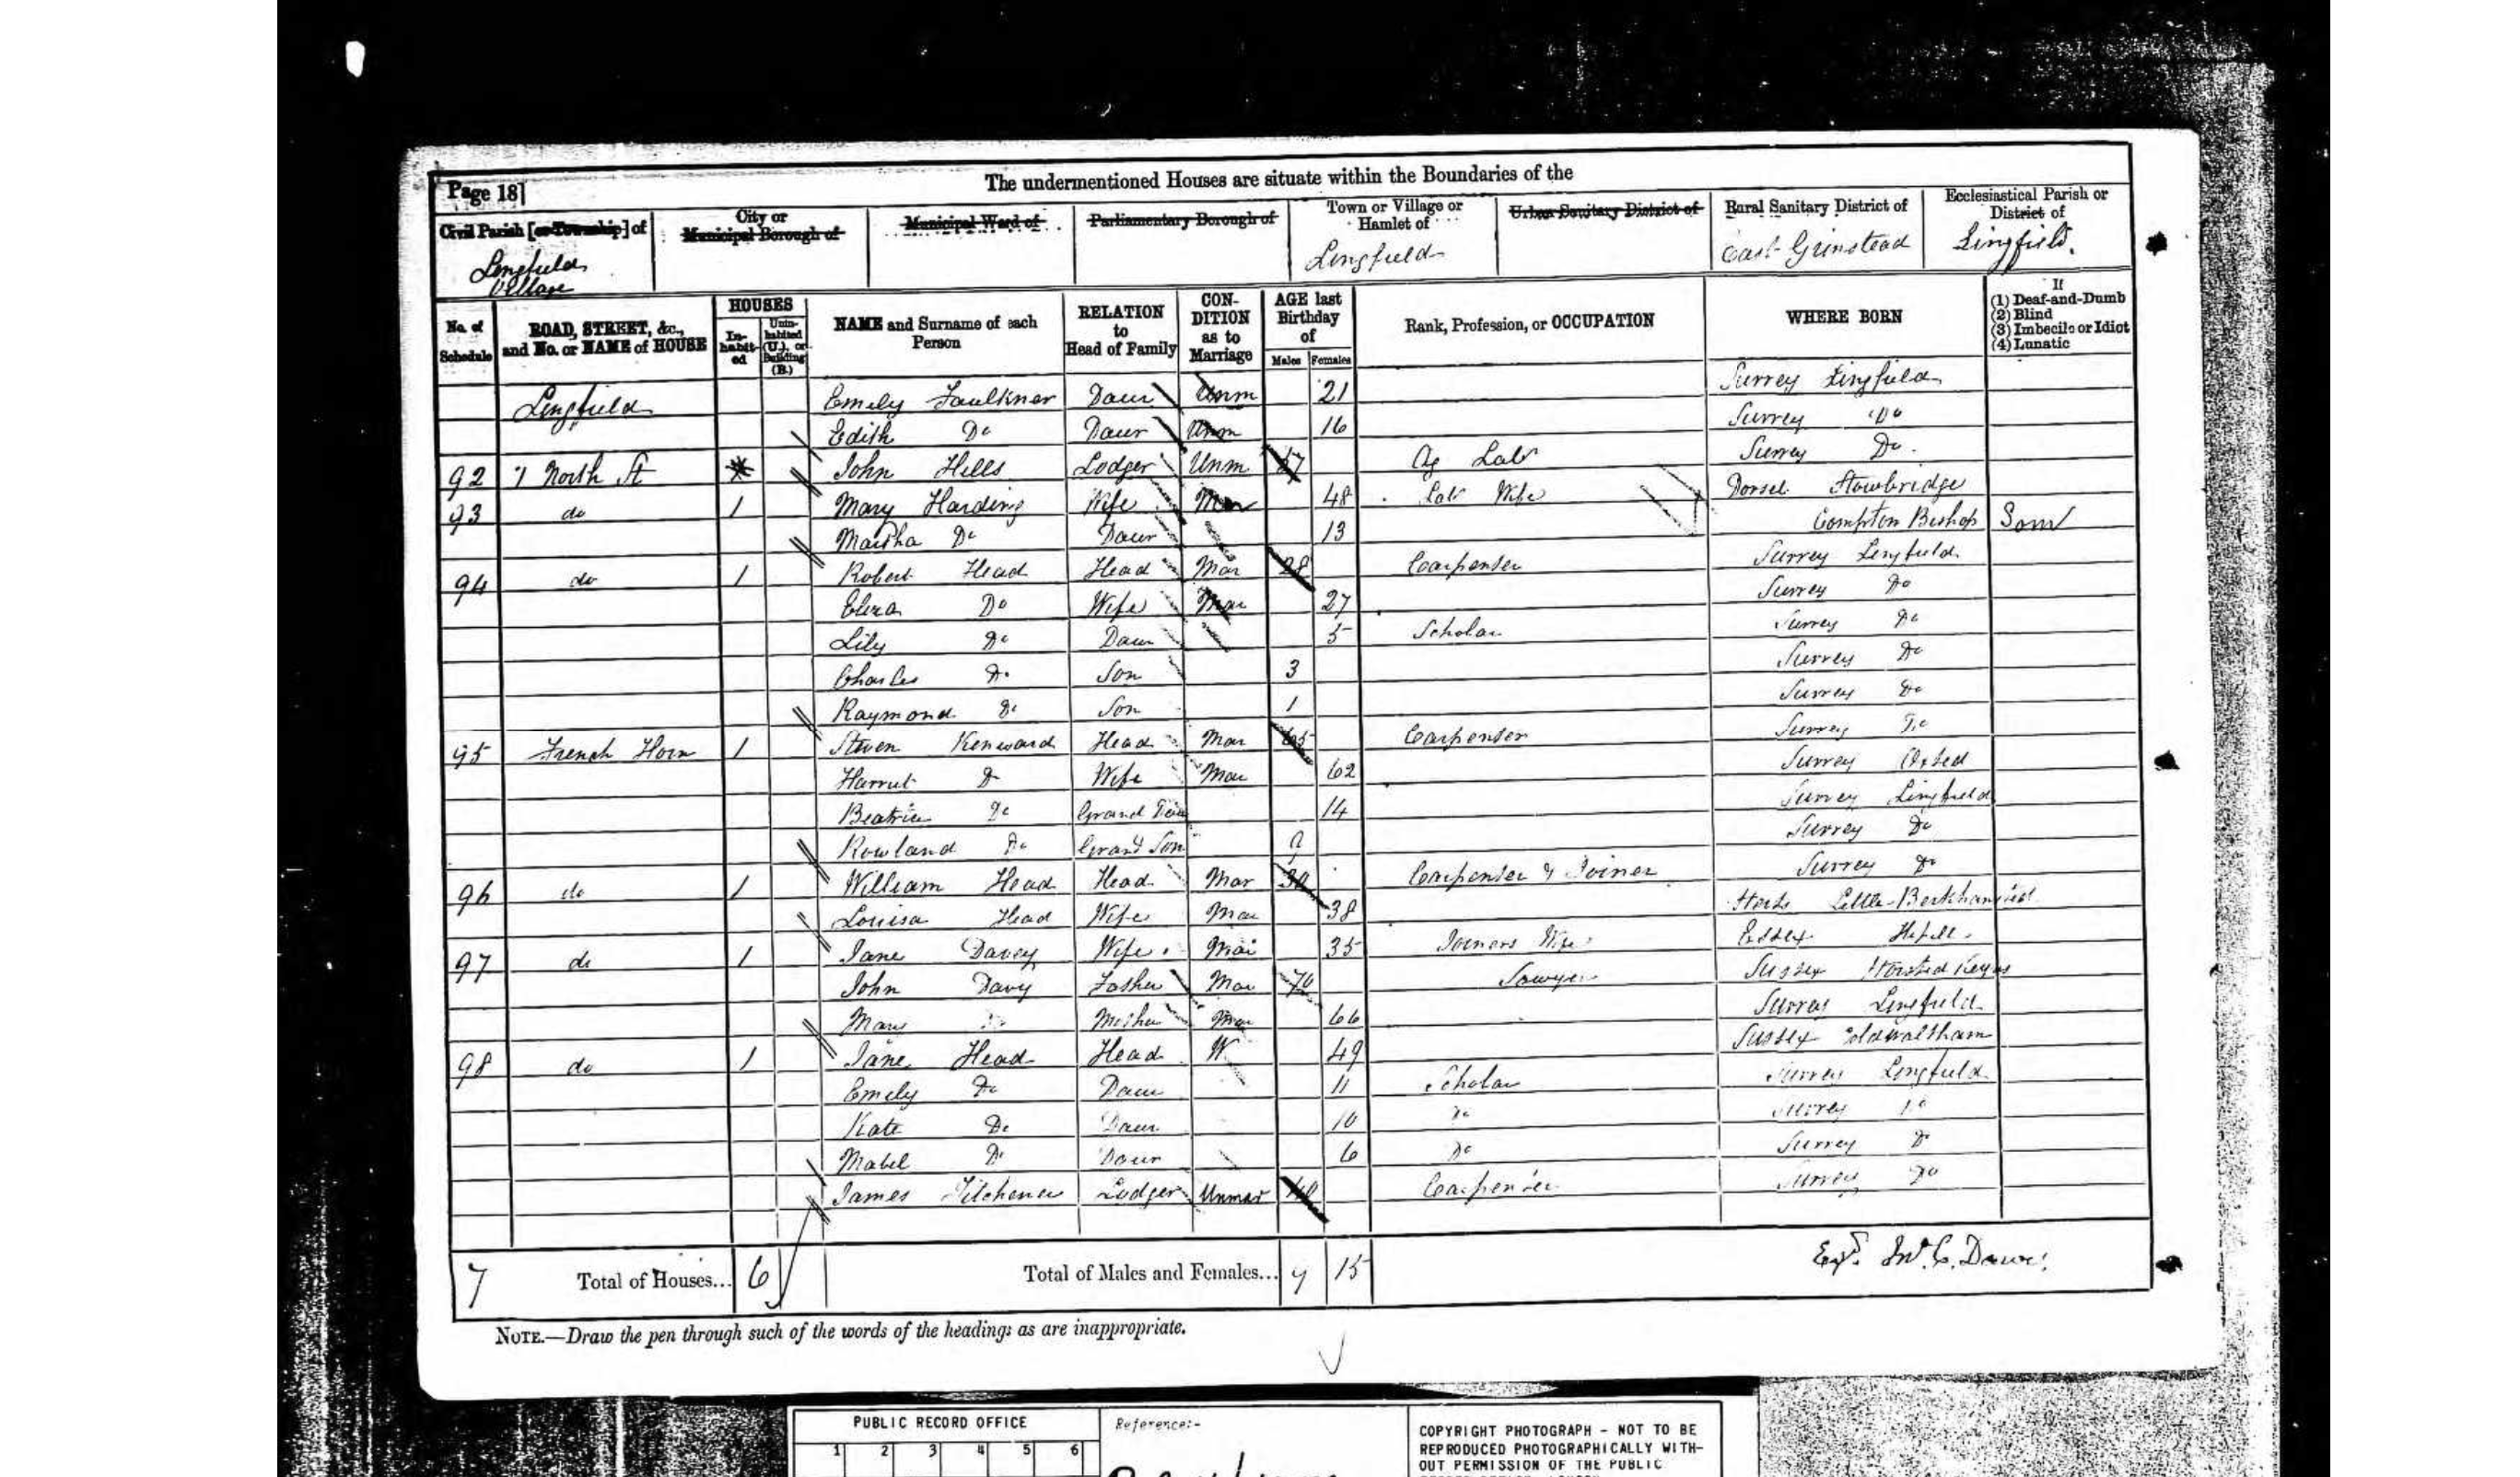 The undermentioned Houses are situate within the Boundaries of the
Page 18]
Civil Parish [or Township] of
City or Municipal Borough of
Municipal Ward of
Parliamentary Borough of
Town or Village or Hamlet of
Urban Sanitary District of
Rural Sanitary District of
Ecclesiastical Parish or District of
Lingfield Village
Lingfield
East Grinstead
Lingfield.
No. of Schedule
ROAD, STREET, &c., and No. or NAME of HOUSE
HOUSES
In-habit-ed
Unin-habited (U.), or Building (B.)
NAME and Surname of each Person
RELATION to Head of Family
CON-DITION as to Marriage
AGE last Birthday of
Males
Females
Rank, Profession, or OCCUPATION
WHERE BORN
If
(1) Deaf-and-Dumb
(2) Blind
(3) Imbecile or Idiot
(4) Lunatic
Lingfield Emily Faulkner Daur Unm 21 Surrey Lingfield
Edith Do Daur Unm 16 Surrey Do
92 North St John Hills Lodger Unm Ag Lab Surrey Do
93 do 1 Mary Harding Wife Mar 48 Lab Wife Dorset Stowbridge
Martha Do Daur 13 Compton Bishop Som
94 do 1 Robert Head Head Mar 28 Carpenter Surrey Lingfield
Eliza Do Wife Mar 27 Surrey Do
Lily Do Daur 5 Scholar Surrey Do
Charles Do Son 3 Surrey Do
Raymond Do Son 1 Surrey Do
95 French Horn 1 Steven Kenward Head Mar 65 Carpenter Surrey Do
Harriet Do Wife Mar 62 Surrey Oxted
Beatrice Do Grand Daur 14 Surrey Lingfield
Rowland Do Grand Son Surrey Do
96 do 1 William Head Head Mar Carpenter & Joiner Surrey Do
Louisa Head Wife Mar 38 Herts Little Berkhamsted
97 do 1 Jane Davey Wife Mar 35 Joiners Wife Essex
John Davy Father Mar 70 Sawyer Sussex Horsted Keynes
Mary Do Mother Mar 66 Surrey Lingfield
98 do 1 Jane Head Head W 49 Sussex Coldwaltham
Emily Do Daur 11 Scholar Surrey Lingfield
Kate Do Daur 10 Do Surrey Do
Mabel Do Daur 6 Do Surrey Do
James Lodger Unmar Carpenter Surrey Do
7 Total of Houses... 6 Total of Males and Females... 9 15
NOTE.—Draw the pen through such of the words of the headings as are inappropriate.
PUBLIC RECORD OFFICE
1 2 3 4 5 6
Reference:-
COPYRIGHT PHOTOGRAPH - NOT TO BE
REPRODUCED PHOTOGRAPHICALLY WITH-
OUT PERMISSION OF THE PUBLIC